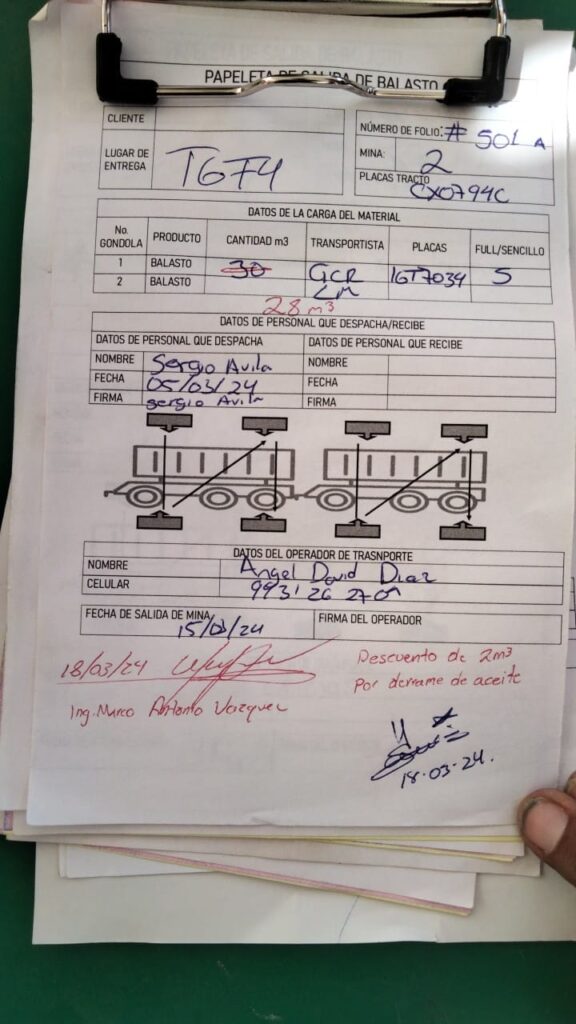 PAPELETA DE SALIDA DE BALASTO
CLIENTE
NÚMERO DE FOLIO: # 501 A
LUGAR DE ENTREGA TGF4
MINA: 2
PLACAS TRACTO CX0794C
DATOS DE LA CARGA DEL MATERIAL
No. GONDOLA PRODUCTO CANTIDAD m3 TRANSPORTISTA PLACAS FULL/SENCILLO
1 BALASTO 30 GCR 1GT7034 S
2 BALASTO LM
28 m³
DATOS DE PERSONAL QUE DESPACHA/RECIBE
DATOS DE PERSONAL QUE DESPACHA DATOS DE PERSONAL QUE RECIBE
NOMBRE Sergio Avila NOMBRE
FECHA 05/03/24 FECHA
FIRMA sergio Avila FIRMA
DATOS DEL OPERADOR DE TRASNPORTE
NOMBRE Angel David Diaz
CELULAR 993 126
FECHA DE SALIDA DE MINA 15/03/24 FIRMA DEL OPERADOR
18/03/24
Descuento de 2m³
Por derrame de aceite
Ing. Marco Antonio Vazquez
18-03-24.